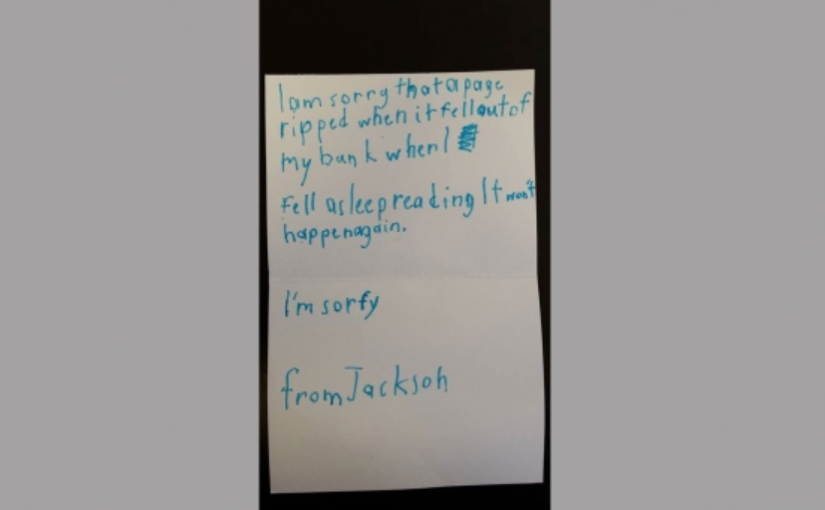 I am sorry that a page
ripped when it fell out of
my bunk when I
Fell asleep reading It won't
happen again.
I'm sorry
from Jackson